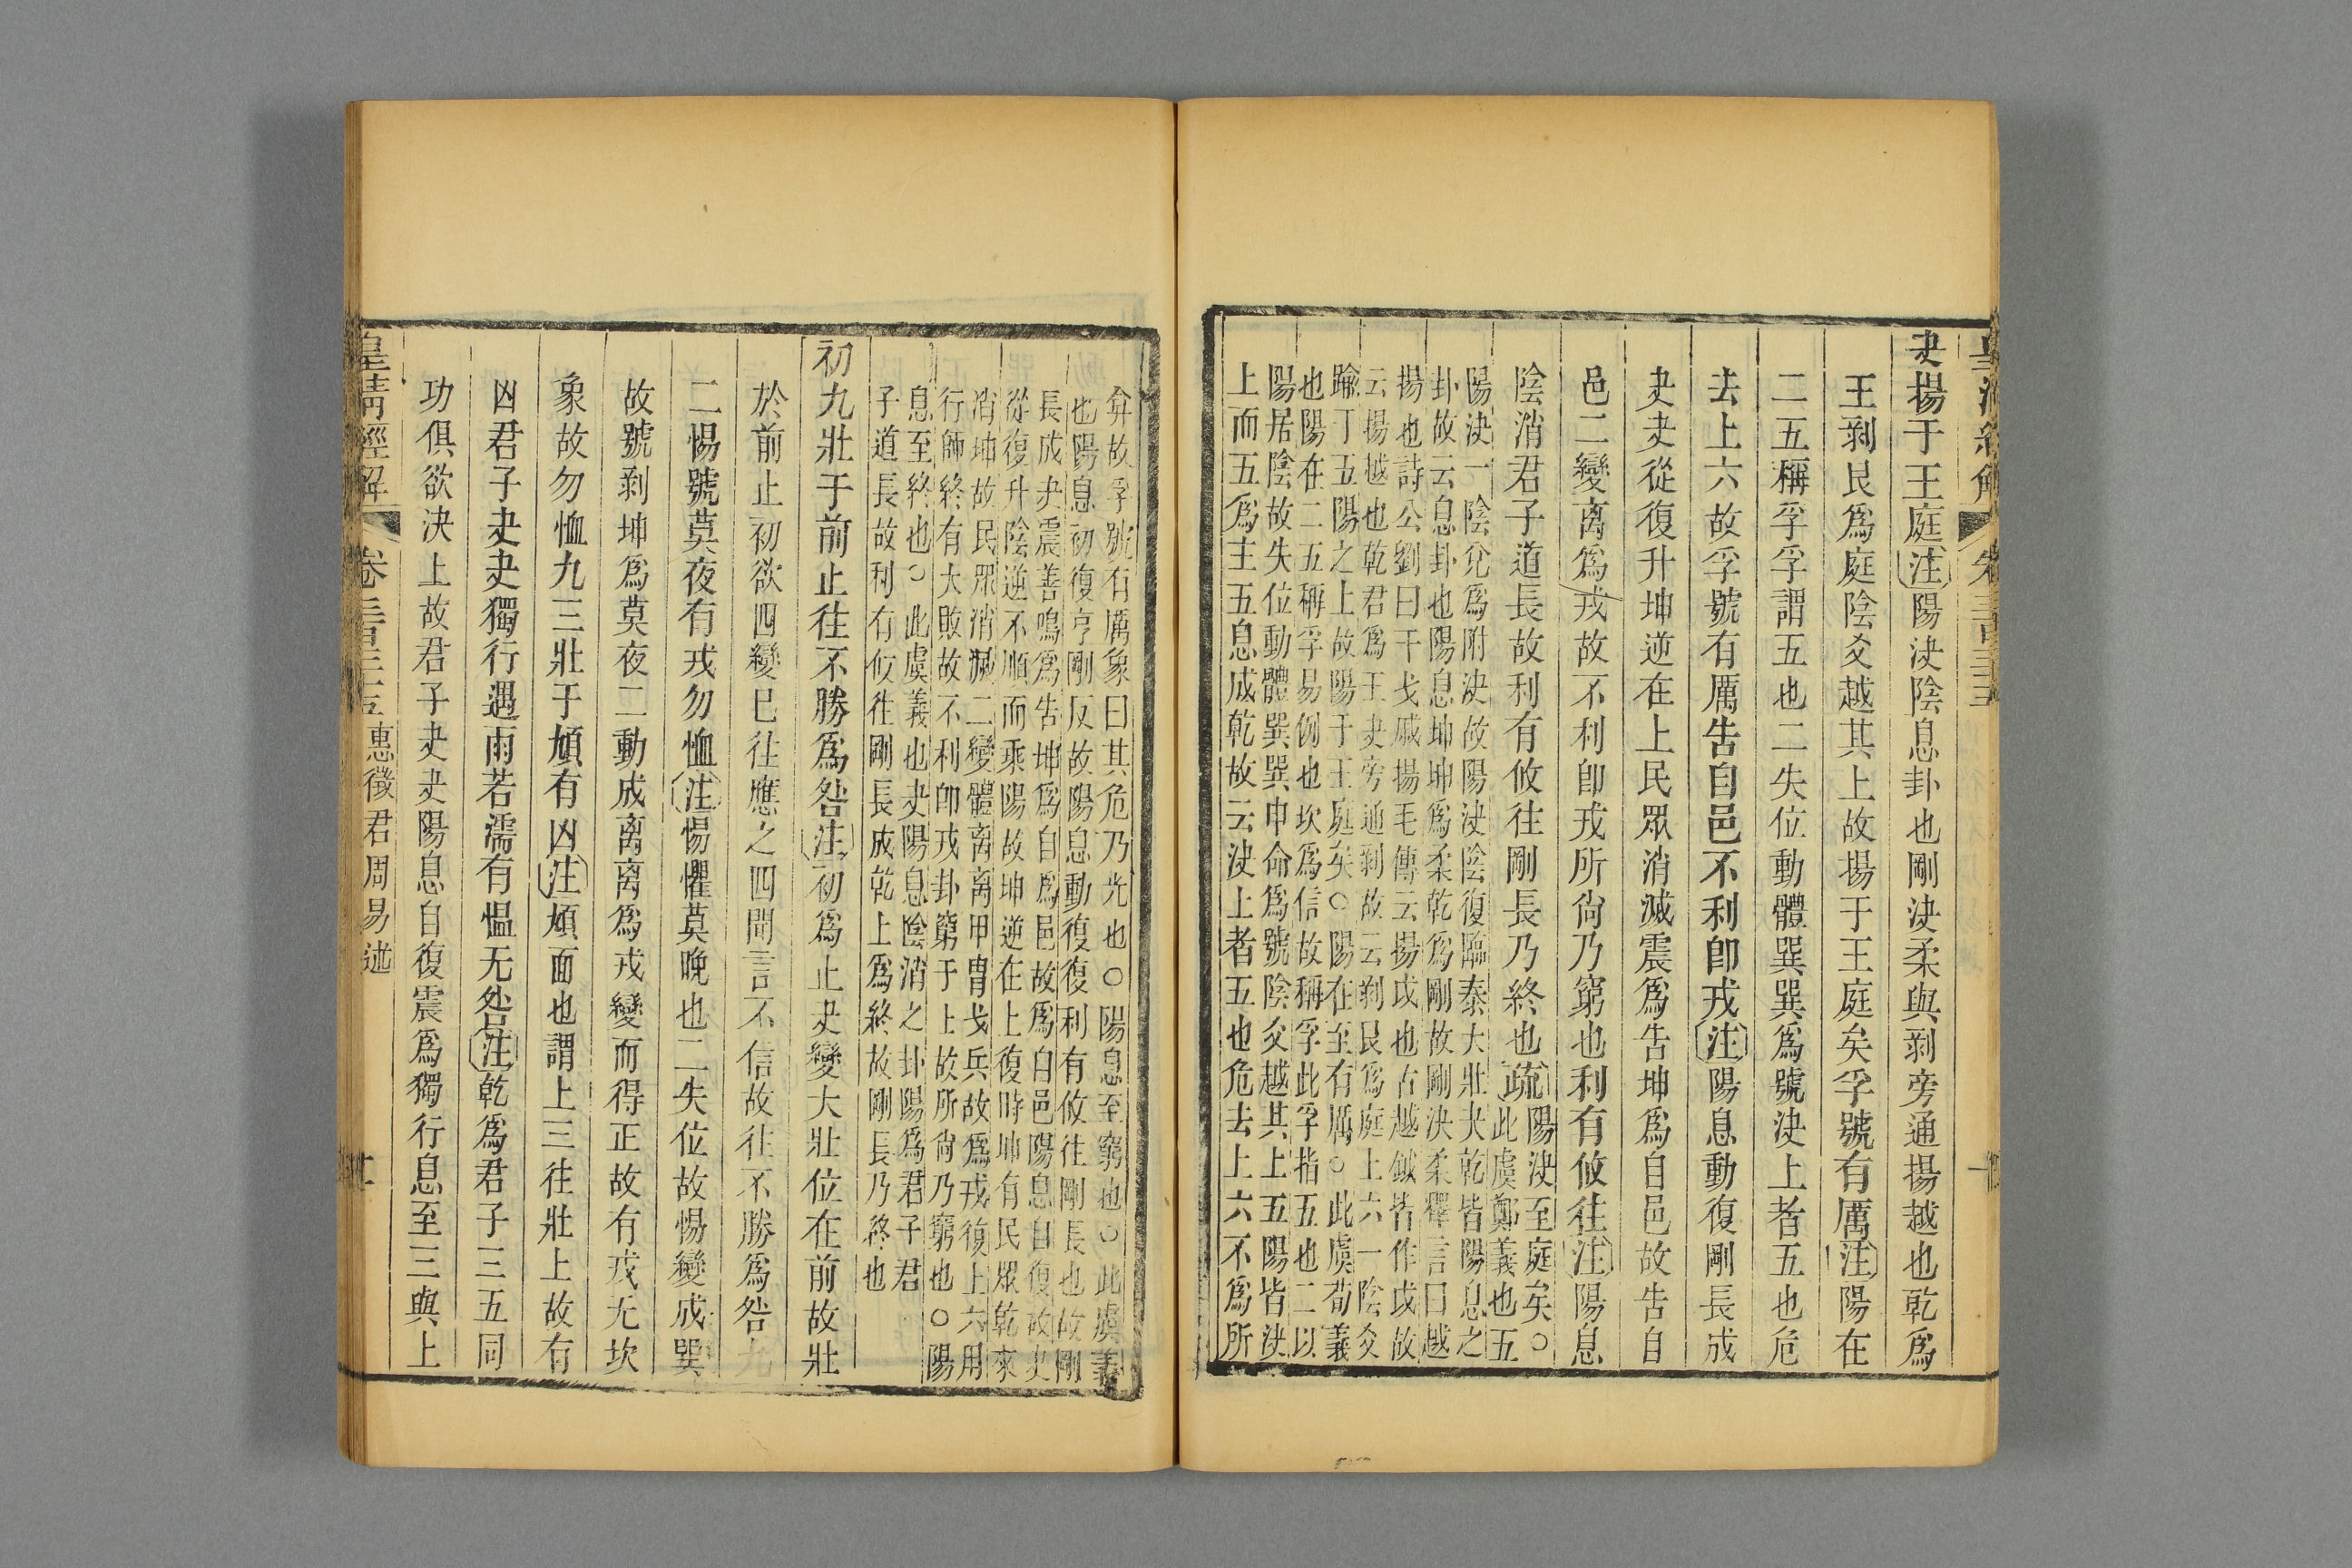 皇清經解 卷三百三十五
夬揚于王庭注陽決陰息卦也剛決柔與剝旁通揚越也乾爲
王剝艮爲庭陰爻越其上故揚于王庭矣孚號有厲注陽在
二五稱孚孚謂五也二失位動體巽巽爲號決上者五也危
去上六故孚號有厲告自邑不利卽戎注陽息動復剛長成
夬夬從復升坤逆在上民眾消滅震爲告坤爲自邑故告自
邑二變离爲戎故不利卽戎所尙乃窮也利有攸往注陽息
陰消君子道長故利有攸往剛長乃終也疏陽決至庭矣○
此虞鄭義也五
陽決一陰兌爲附決故陽決陰復臨泰大壯夬乾皆陽息之
卦故云息卦也陽息坤坤爲柔乾爲剛故剛決柔釋言曰越
揚也詩公劉曰干戈戚揚毛傳云揚戉也古越鉞皆作戉故
云揚越也乾君爲王夬旁通剝故云剝艮爲庭上六一陰爻
踰丁五陽之上故陽于王庭矣○陽在至有厲○此虞荀義
也陽在二五稱孚易例也坎爲信故稱孚此孚指五也二以
陽居陰故失位動體巽巽申命爲號陰爻越其上五陽皆決
上而五爲主五息成乾故云決上者五也危去上六不爲所
弇故孚號有厲象曰其危乃光也○陽息至窮也○此虞義
也陽息初復亨剛反故陽息動復復利有攸往剛長也故剛
長成夬震善鳴爲告坤爲自爲邑故爲自邑陽息自復故夬
從復升陰逆不順而乘陽故坤逆在上復時坤有民眾乾來
消坤故民眾消滅二變體离离甲胄戈兵故爲戎復上六用
行師終有大敗故不利卽戎卦窮于上故所尙乃窮也○陽
息至終也○此虞義也夬陽息陰消之卦陽爲君子君
子道長故利有攸往剛長成乾上爲終故剛長乃終也
初九壯于前止往不勝爲咎注初爲止夬變大壯位在前故壯
於前止初欲四變已往應之四聞言不信故往不勝爲咎九
二惕號莫夜有戎勿恤注惕懼莫晚也二失位故惕變成巽
故號剝坤爲莫夜二動成离离爲戎變而得正故有戎无坎
象故勿恤九三壯于頄有凶注頄面也謂上三往壯上故有
凶君子夬夬獨行遇雨若濡有慍无咎注乾爲君子三五同
功俱欲決上故君子夬夬陽息自復震爲獨行息至三與上
皇清經解 卷三百三十五 惠徵君周易述